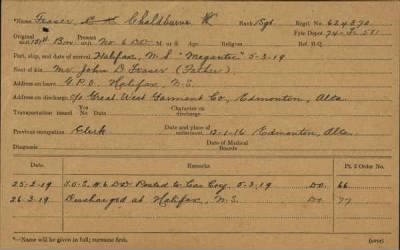 *Name Fraser Chaldburne Rank Sgt. Regtl. No.
Fyle Depot
Original unit 151st Bn. Present unit No 6 DD. M. or S. Age Religion Ref. H.Q.
Port, ship, and date of arrival Halifax, N.S. "Megantic" 5-3-19
Next of kin Mr. John D Fraser (Father)
Address on leave G.P.O. Halifax, N.S.
Address on discharge c/o Great West Garment Co, Edmonton, Alta.
Transportation issued Yes No Date Character on discharge
Previous occupation Clerk Date and place of enlistment -1-16 Edmonton, Alta.
Diagnosis Date of Medical Boards
Date. Remarks Pt. 2 Order No.
25-3-19 T.O.S. #6 DD Posted to Cas Coy. 5-3-19 Do. 66
26-3-19 Discharged at Halifax, N.S. Do. 77
*—Name will be given in full; surname first. (OVER)